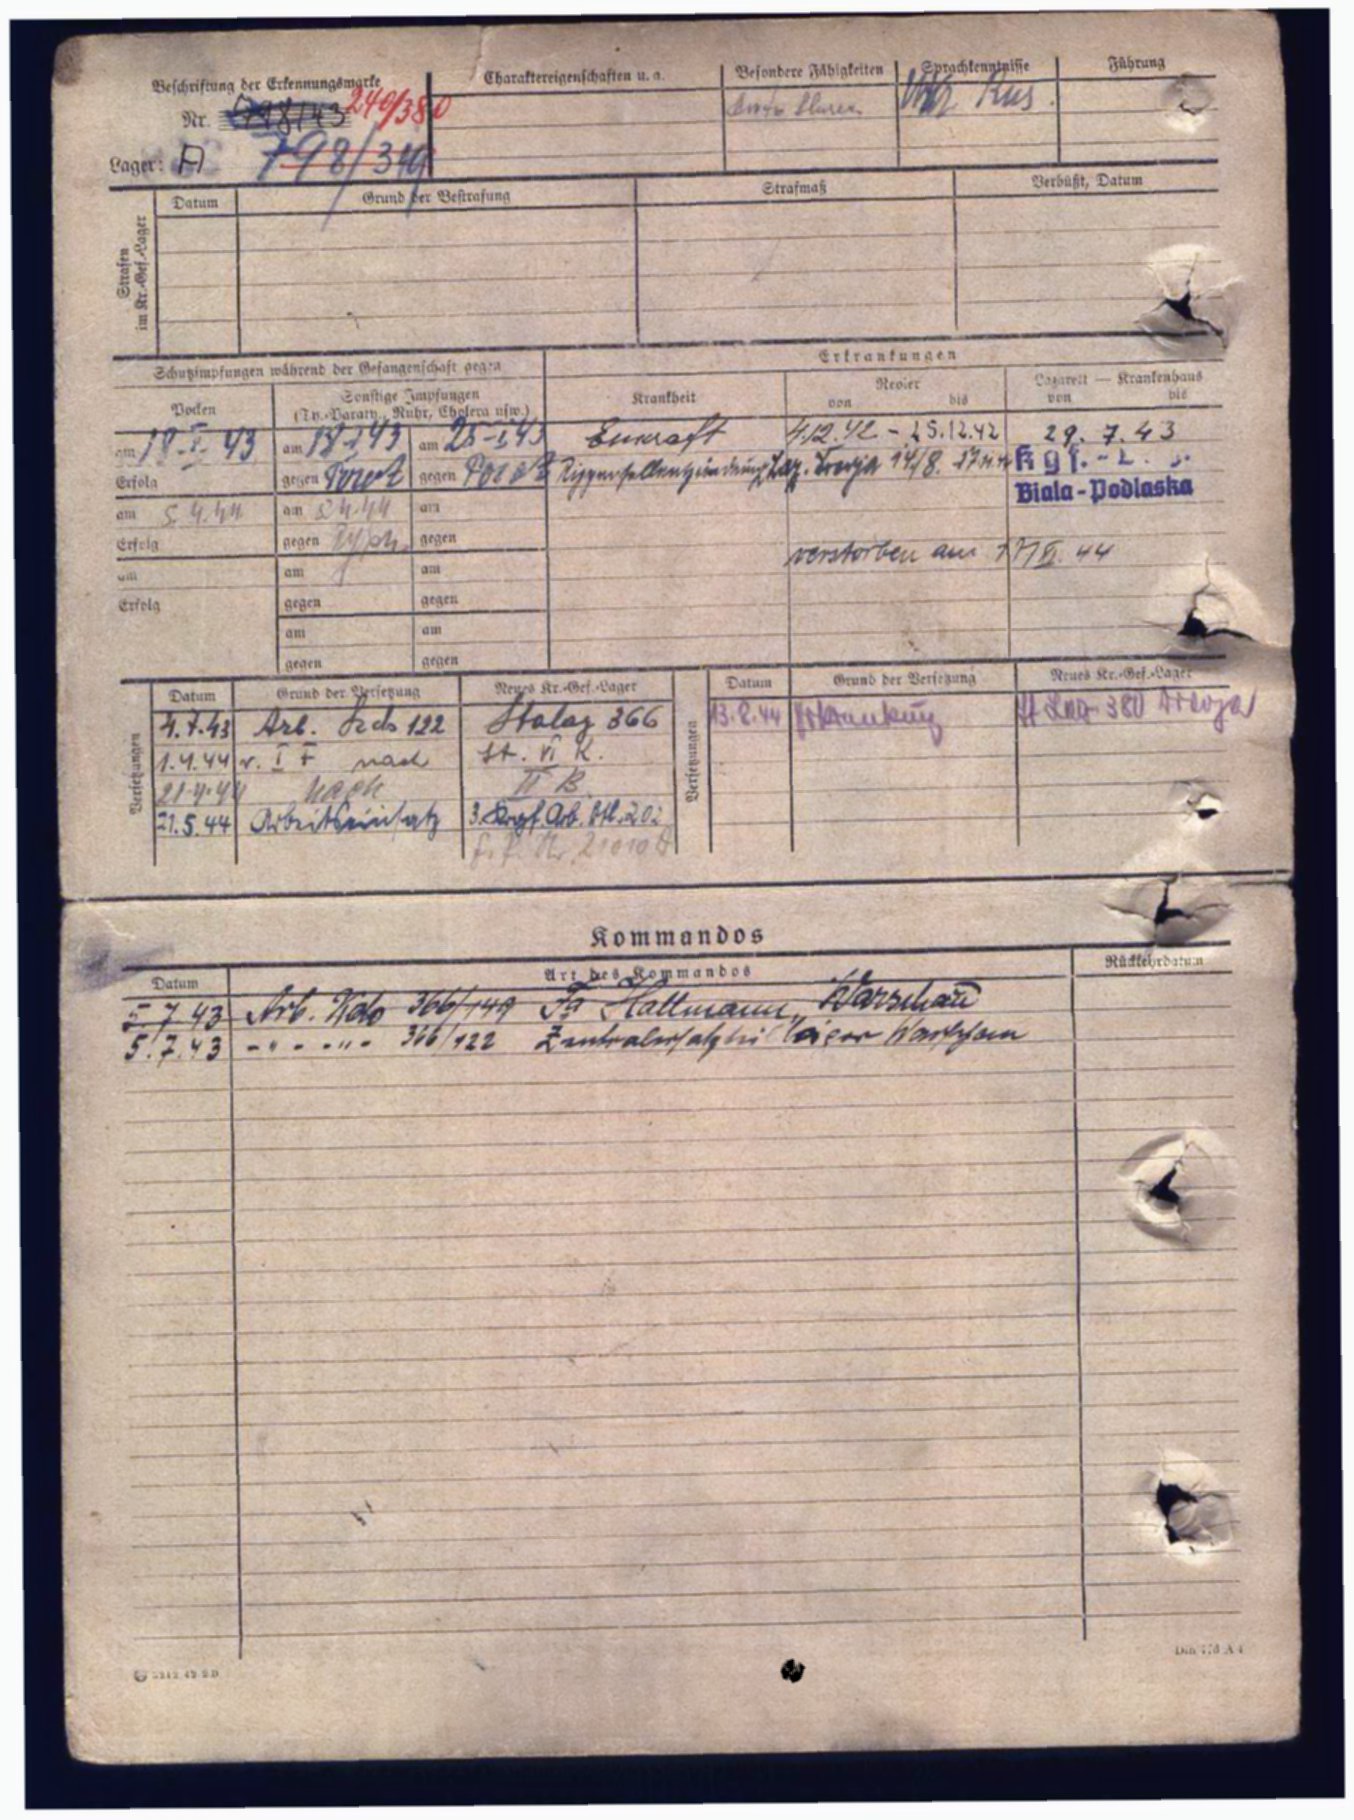 Beschriftung der Erkennungsmarke
Charaktereigenschaften u. a.
Besondere Fähigkeiten
Sprachkenntnisse
Führung
Nr. 798/43 240/380
Rus.
Lager: A 798/319
Strafen im Kr.-Gef.-Lager
Datum
Grund der Bestrafung
Strafmaß
Verbüßt, Datum
Schutzimpfungen während der Gefangenschaft gegen
Erkrankungen
Pocken
Sonstige Impfungen
(Ty.-Paraty., Ruhr, Cholera usw.)
Krankheit
Revier
von bis
Lazarett — Krankenhaus
von bis
am 18.I.43 am 18.I.43 am 25.I.43
4.12.42 - 25.12.42 29.7.43
Erfolg gegen gegen
Rippenfellentzündung Laz. 14/8.
Biala-Podlaska
am 5.4.44 am 5.4.44 am
Erfolg gegen Typh. gegen
verstorben am 17/XI. 44
am am am
Erfolg gegen gegen
am am
gegen gegen
Versetzungen
Datum
Grund der Versetzung
Neues Kr.-Gef.-Lager
Versetzungen
Datum
Grund der Versetzung
Neues Kr.-Gef.-Lager
4.7.43 Arb. Kdo 122 Stalag 366
13.8.44 Erkrankung 380
1.4.44 v. I F nach St. VI K.
21.4.44 nach II B.
21.5.44 Arbeitseinsatz 3. Krgf. Arb. Btl. 202
Kommandos
Datum
Art des Kommandos
Rückkehrdatum
5.7.43 Arb. Kdo 366/149 Fa Haltmann, Warschau
5.7.43 -"- -"- 366/122 Warschau
Din 476 A 4